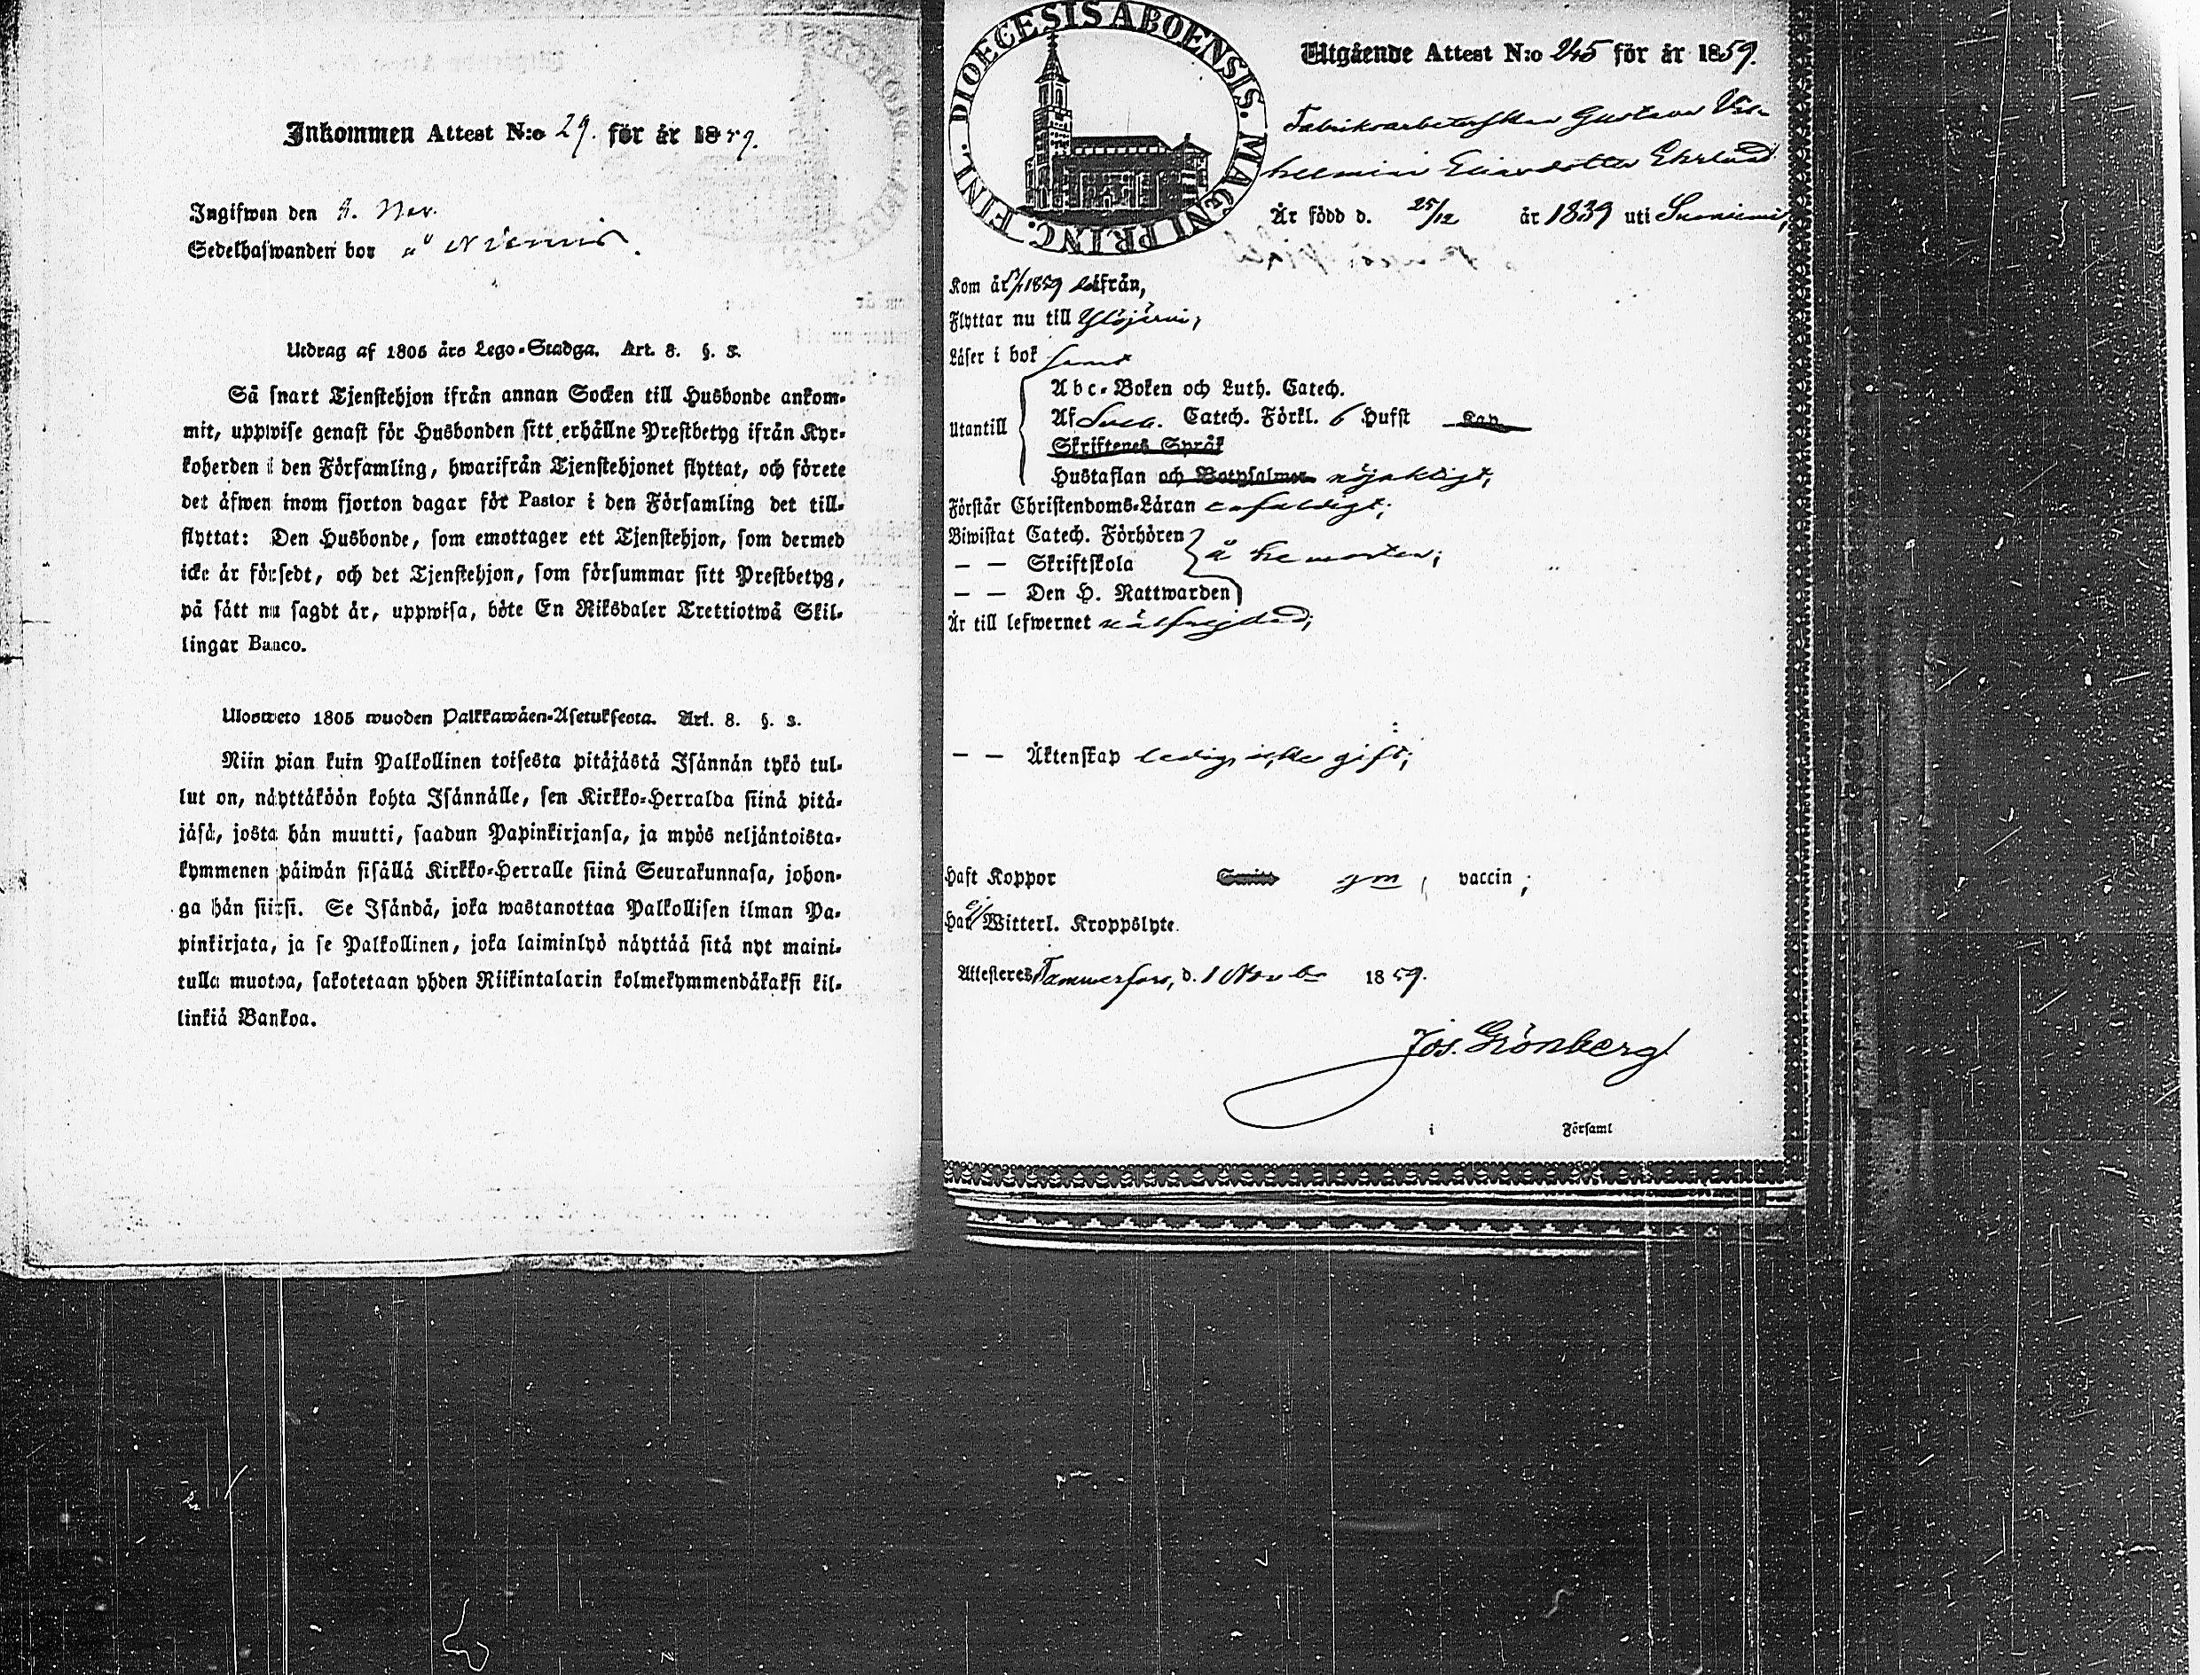 Inkommen Attest N:o 29. för år 1859.
Ingifwen den 9. Nov.
Sedelhafwanden bor å Niemis.
Utdrag af 1805 års Lego-Stadga. Art. 8. §. 3.
Så snart Tjenstehjon ifrån annan Socken till Husbonde ankom-
mit, uppwise genast för Husbonden sitt erhållne Prestbetyg ifrån Kyr-
koherden i den Församling, hwarifrån Tjenstehjonet flyttat, och förete
det äfwen inom fjorton dagar för Pastor i den Församling det till-
flyttat: Den Husbonde, som emottager ett Tjenstehjon, som dermed
icke är försedt, och det Tjenstehjon, som försummar sitt Prestbetyg,
på sätt nu sagdt är, uppwisa, böte En Riksdaler Trettiotwå Skil-
lingar Banco.
Ulosweto 1805 wuoden Palkkawäen-Asetuksesta. Art. 8. §. 3.
Niin pian kuin Palkollinen toisesta pitäjästä Isännän tykö tul-
lut on, näyttäköön kohta Isännälle, sen Kirkko-Herralda siinä pitä-
jäsä, josta hän muutti, saadun Papinkirjansa, ja myös neljäntoista-
kymmenen päiwän sisällä Kirkko-Herralle siinä Seurakunnasa, johon-
ga hän siirsi. Se Isändä, joka wastanottaa Palkollisen ilman Pa-
pinkirjata, ja se Palkollinen, joka laiminlyö näyttää sitä nyt maini-
tulla muotoa, sakotetaan yhden Riikintalarin kolmekymmendäkaksi kil-
linkiä Bankoa.
DIOECESIS ABOENSIS. MAGNI PRINC. FINL.
Utgående Attest N:o 245 för år 1859.
Fabriksarbeterskan Gustava Vil-
helmina Eliasdotter Ehrlund
Är född d. 25/12 år 1839 uti Suoniemi,
Kom år 1859 ifrån,
Flyttar nu till Ylöjärvi,
Läser i bok
Utantill
Abc-Boken och Luth. Catech.
Af Sveb. Catech. Förkl. 6 Hufst Kap
Skriftenes Språk
Hustaflan och Botpsalmer nöjaktigt,
Förstår Christendoms-Läran enfaldigt;
Biwistat Catech. Förhören
— — Skriftskola å hemorten;
— — Den H. Nattwarden
Är till lefwernet välfrejdad;
— — Äktenskap ledig, icke gift;
Haft Koppor gm, vaccin;
Har ej Witterl. Kroppslyte.
Attesteres Tammerfors, d. 1 Novemb. 1859.
Jos. Grönberg
i Församl